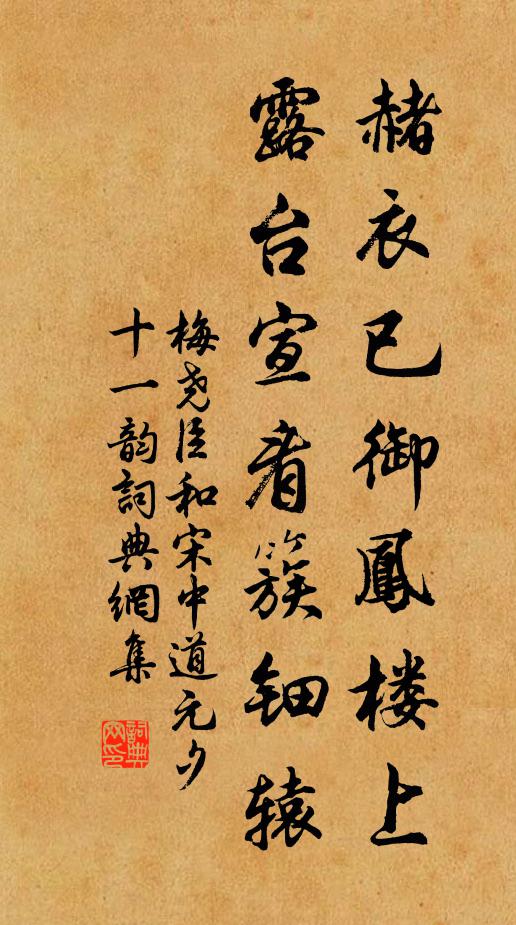 赭衣已御鳳楼上
露台宣看簇钿辕
梅尧臣和宋中道元夕
十一韵詞典網集
詞典网印